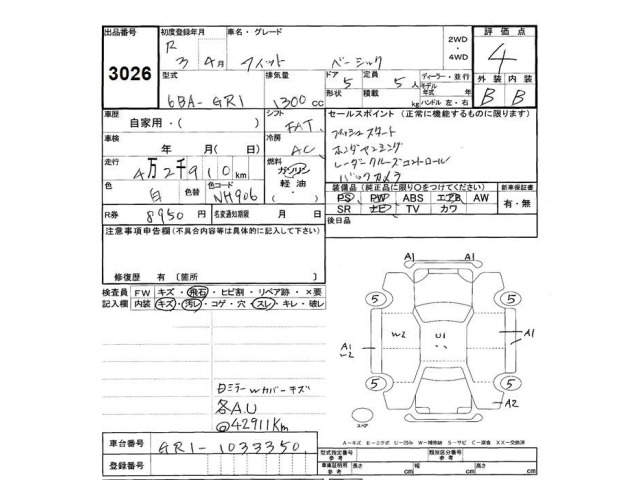 出品番号 3026
初度登録年月 R 3年 4月
車名・グレード フィット ベーシック
2WD・4WD
評価点 4
外装 B 内装 B
型式 6BA-GR1
排気量 1300cc
ドア 5 形状
定員 5人 積載 kg
ディーラー・並行
モデル年式 年
ハンドル 左・右
車歴 自家用・( )
シフト FAT
セールスポイント (正常に機能するものに限ります)
プッシュスタート
ホンダセンシング
レーダークルーズコントロール
バックカメラ
車検 年 月( 日)
冷房 AC
走行 4万2千910km
燃料 ガソリン 軽油・( )
色 白 色替
色コード NH906
装備品(純正品に限り○をつけてください)
PS PW ABS エアB AW
SR ナビ TV カワ
新車保証書 有・無
R券 8950円
名変通知期限 月 日
後日品
注意事項申告欄(不具合内容等は具体的に記入して下さい)
修復歴 有 〔箇所 〕
検査員記入欄
FW キズ・飛石・ヒビ割・リペア跡・×要
内装 キズ・汚レ・コゲ・穴・スレ・キレ・破レ
A1 A1
5 5
W2 U1 A1
A1
-2
5 5
A2
スペア
日ミラーWカバーキズ
各A.U
@42911Km
A-キズ E-エクボ U-凹み W-補修跡 S-サビ C-腐食 XX-交換済
車台番号 GR1-1033350
登録番号
型式指定番号 参考
類別区分番号 参考
車庫証明用 参考 長さ cm 幅 cm 高さ cm